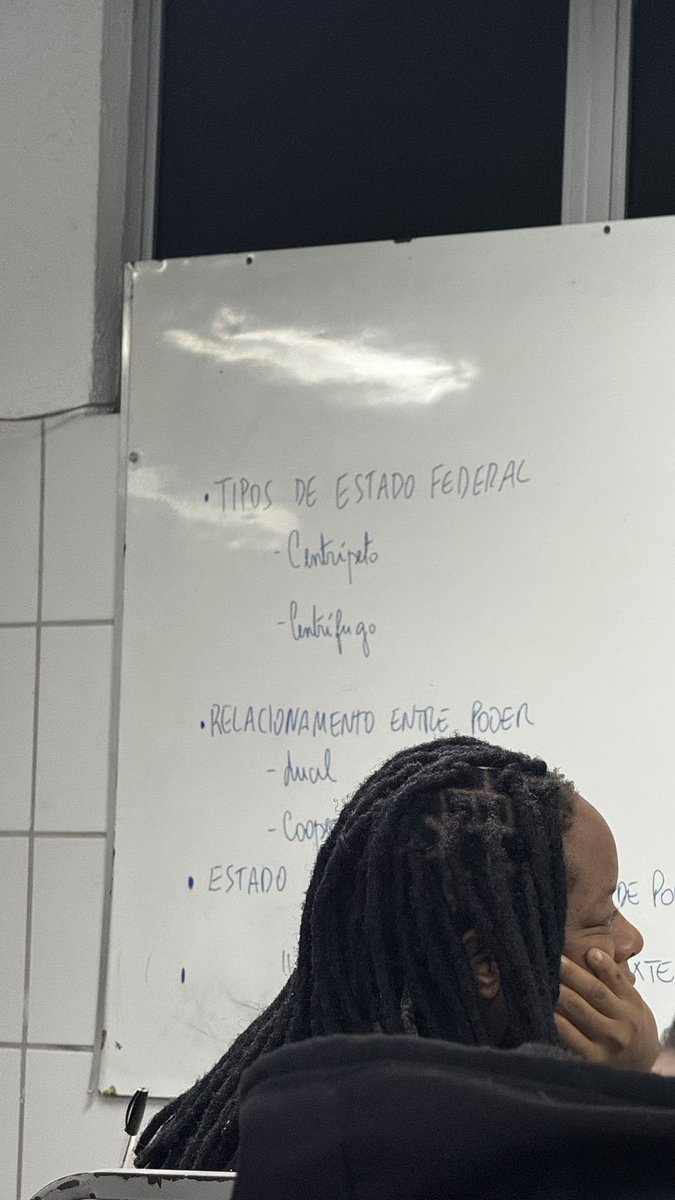 • TIPOS DE ESTADO FEDERAL
- Centrípeto
- Centrífugo
• RELACIONAMENTO ENTRE PODER
- dual
- Coope
• ESTADO DE PO
XTE